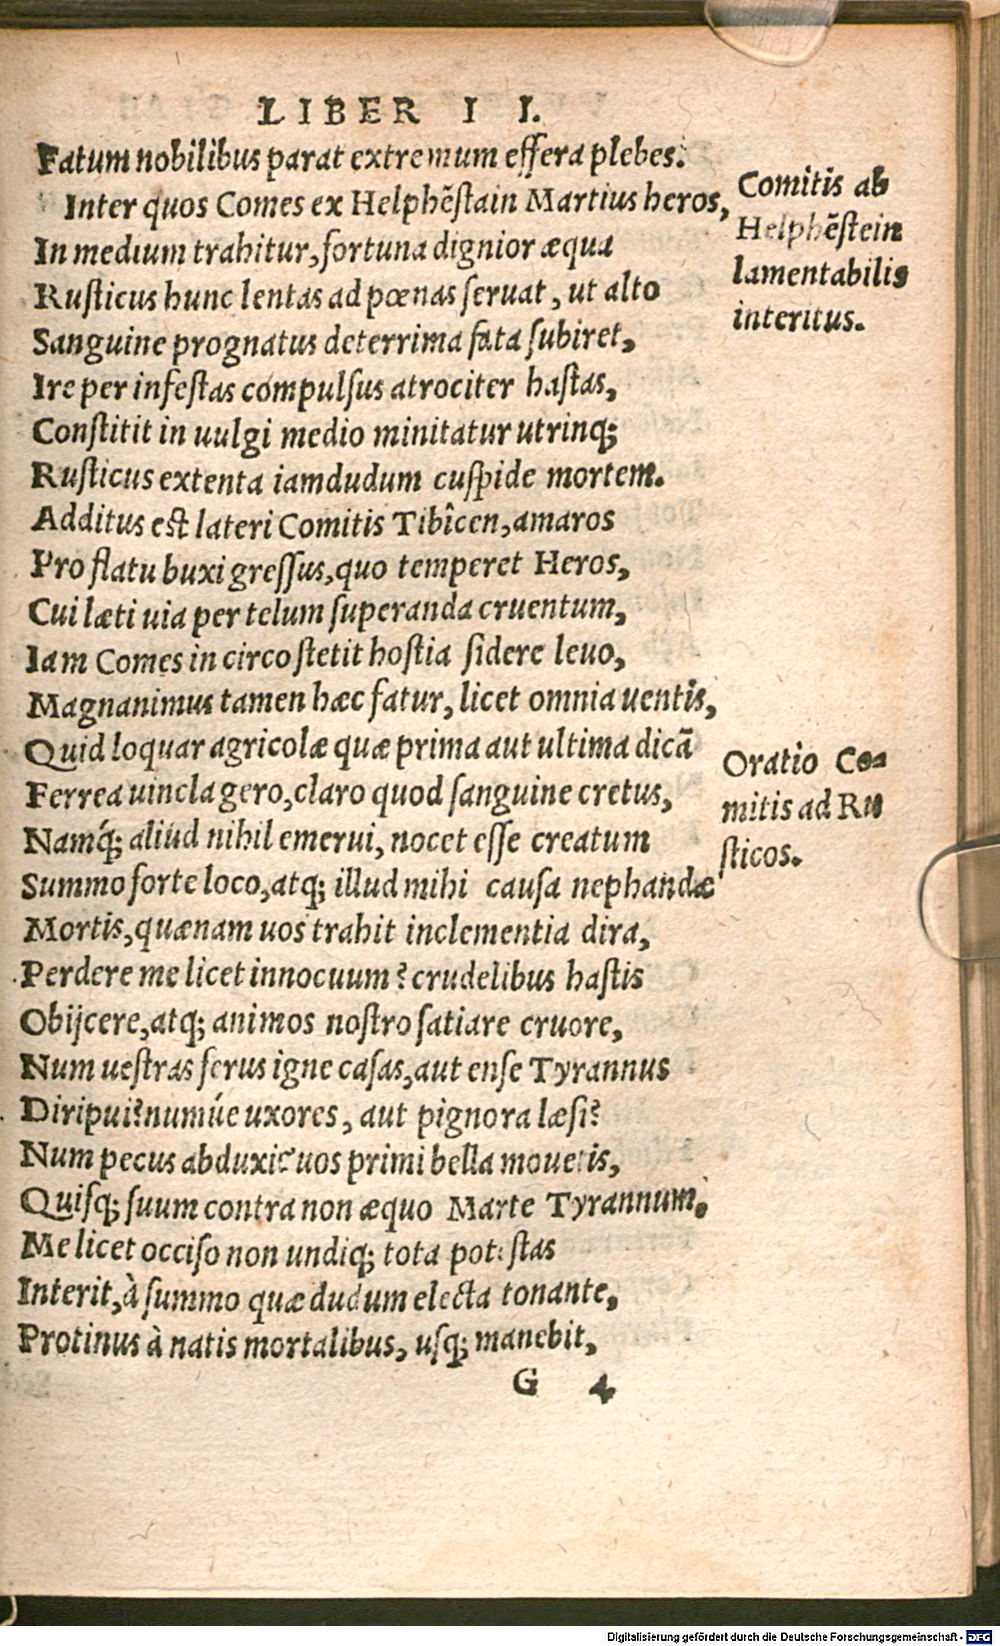 LIBER II.
Fatum nobilibus parat extremum effera plebes.
Inter quos Comes ex Helphẽſtain Martius heros,
In medium trahitur, fortuna dignior æqua
Ruſticus hunc lentas ad pœnas ſeruat, ut alto
Sanguine prognatus deterrima fata ſubiret,
Ire per infeſtas compulſus atrociter haſtas,
Conſtitit in uulgi medio minitatur utrinq;
Ruſticus extenta iamdudum cuſpide mortem.
Additus eſt lateri Comitis Tibîcen, amaros
Pro flatu buxi greſſus, quo temperet Heros,
Cui læti uia per telum ſuperanda cruentum,
Iam Comes in circo ſtetit hoſtia ſidere leuo,
Magnanimus tamen hæc fatur, licet omnia uentis,
Quid loquar agricolæ quæ prima aut ultima dicã
Ferrea uincla gero, claro quod ſanguine cretus,
Namq́; aliud nihil emerui, nocet eſſe creatum
Summo forte loco, atq; illud mihi cauſa nephandæ
Mortis, quænam uos trahit inclementia dira,
Perdere me licet innocuum? crudelibus haſtis
Obijcere, atq; animos noſtro ſatiare cruore,
Num ueſtras ferus igne caſas, aut enſe Tyrannus
Diripui? numúe uxores, aut pignora læſi?
Num pecus abduxi? uos primi bella mouetis,
Quiſq; ſuum contra non æquo Marte Tyrannum.
Me licet occiſo non undiq; tota poteſtas
Interit, à ſummo quæ dudum electa tonante,
Protinus à natis mortalibus, uſq; manebit,
G 4
Comitis ab
Helphẽſtein
lamentabilis
interitus.
Oratio Co-
mitis ad Ru
ſticos.
Digitalisierung gefördert durch die Deutsche Forschungsgemeinschaft - DFG